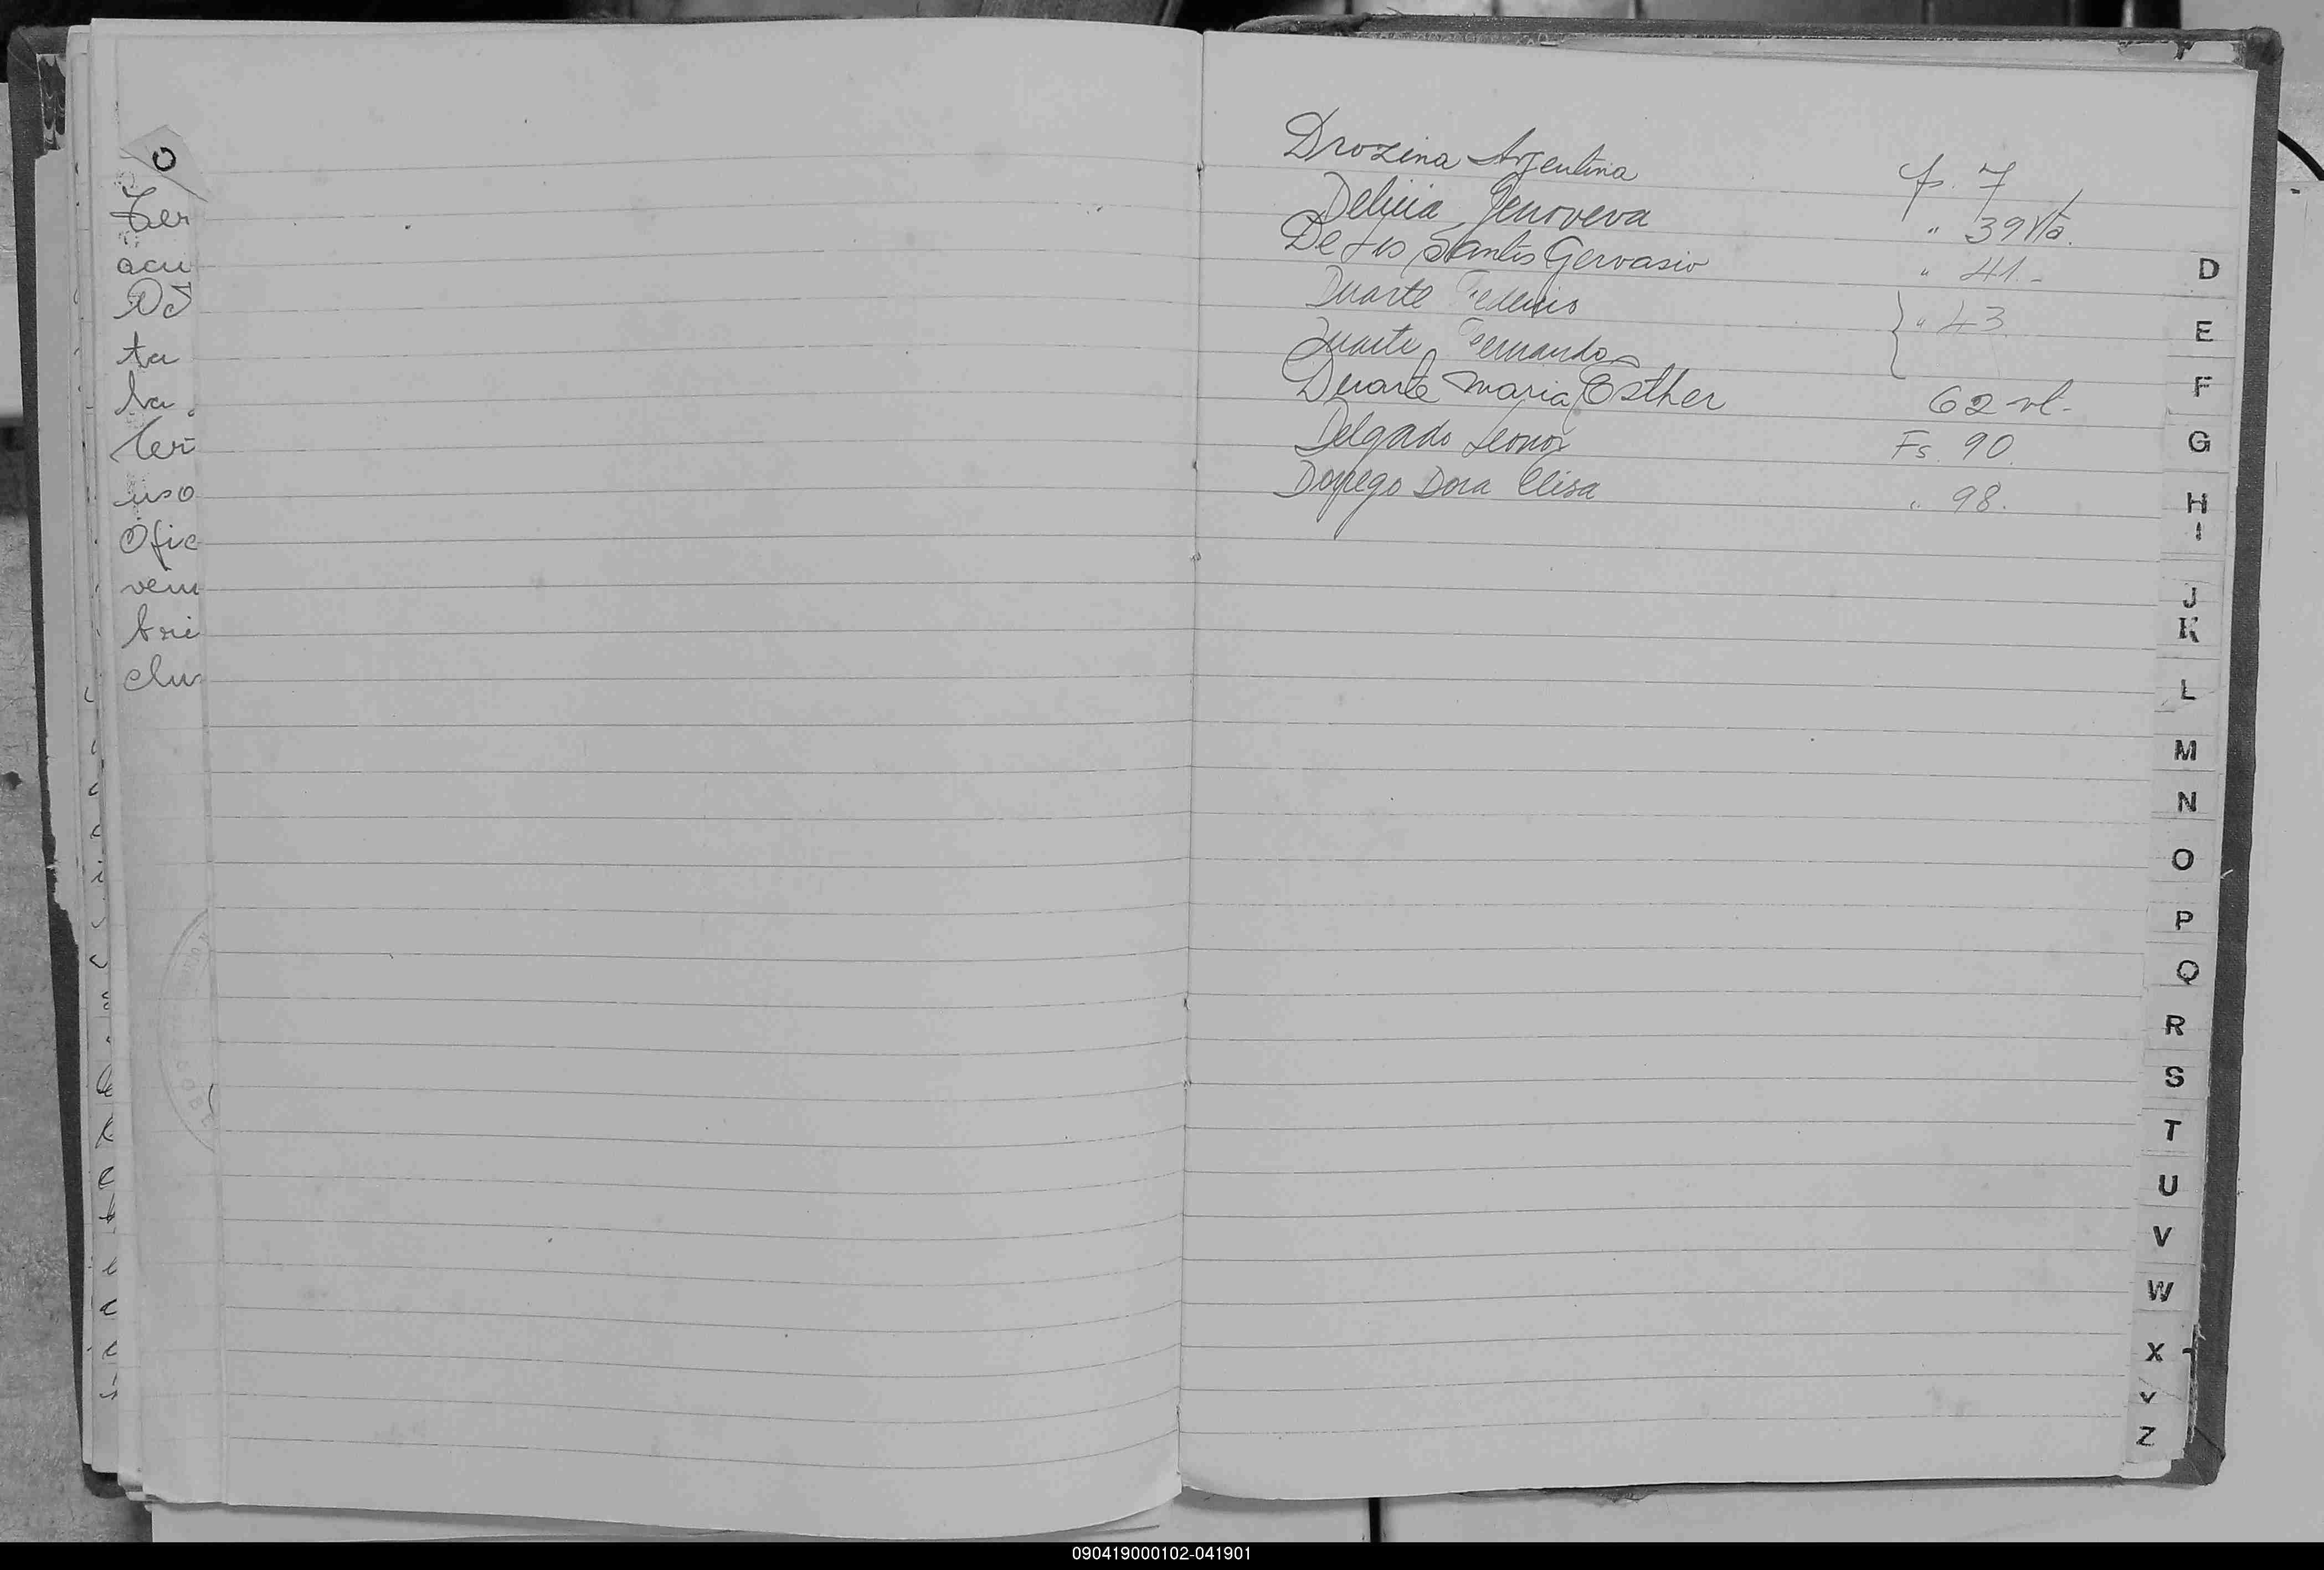 O
Ter
acu
De
ta
la
ter
uso
Ofic
vem
bri
clu
Drozina Argentina fs. 7
Delicia Genoveva " 39 Vta.
De Los Santos Gervasio " 41.-
Duarte Federico
} " 43
Duarte Fernando
Duarte Maria Esther 62 vt.
Delgado Leonor Fs. 90.
Dorrego Dora Elisa " 98.
D
E
F
G
H
I
J
K
L
M
N
O
P
Q
R
S
T
U
V
W
X
Y
Z
090419000102-041901